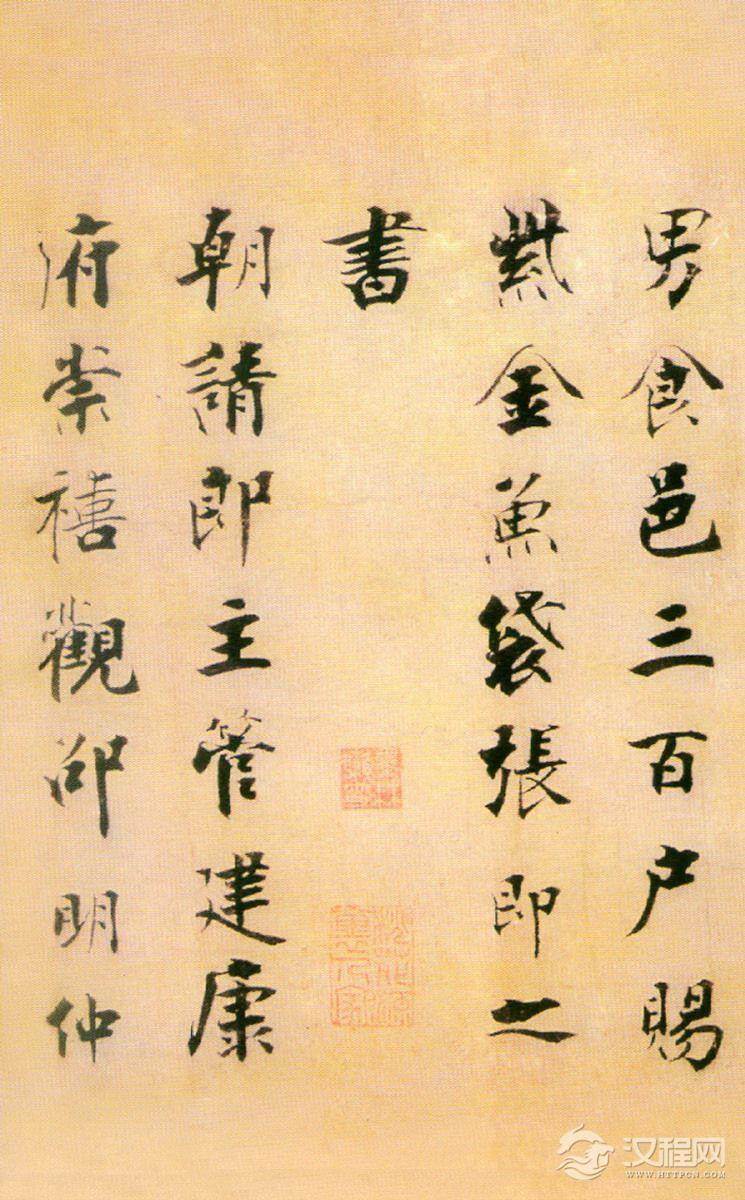 男食邑三百户賜
紫金魚袋張即之
書
朝請郎主管建康
府崇禧觀邵明仲
汉程网
WWW.HTTPCN.COM